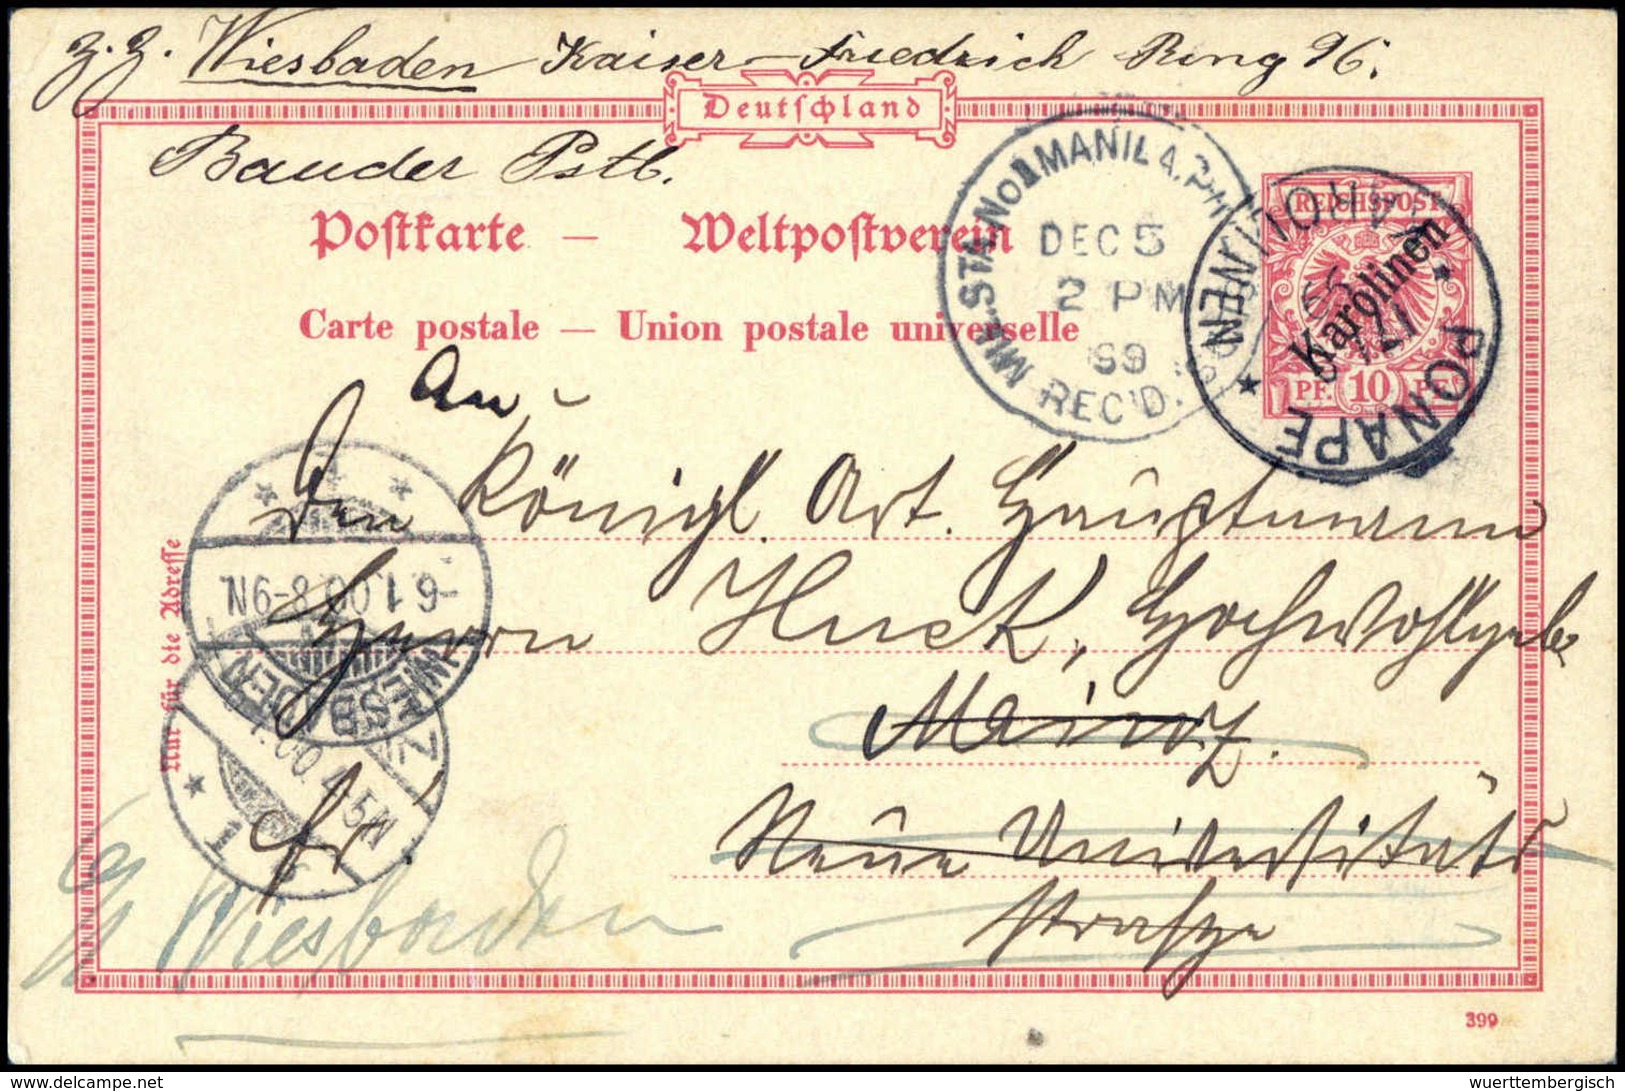 z. Z. Wiesbaden Kaiser-Friedrich Ring 96.
Deutschland
Bauder Pstb.
Postkarte – Weltpostverein
Carte postale – Union postale universelle
MIL. STA. No 1 MANILA, P.
DEC 5
2 PM
99
REC'D.
KAROLINEN
PONAPE
REICHSPOST
Karolinen
PF. 10 PF.
An
Den Königl. Art. Hauptmann
Herrn Huck, Hochwohlgeb
Mainz.
Neue Universitäts
strasse
Wiesbaden
WIESBADEN
-6.1.00.8-9N.
1.00. 4-5N
Nur für die Adresse
399
© www.delcampe.net
wuerttembergisch